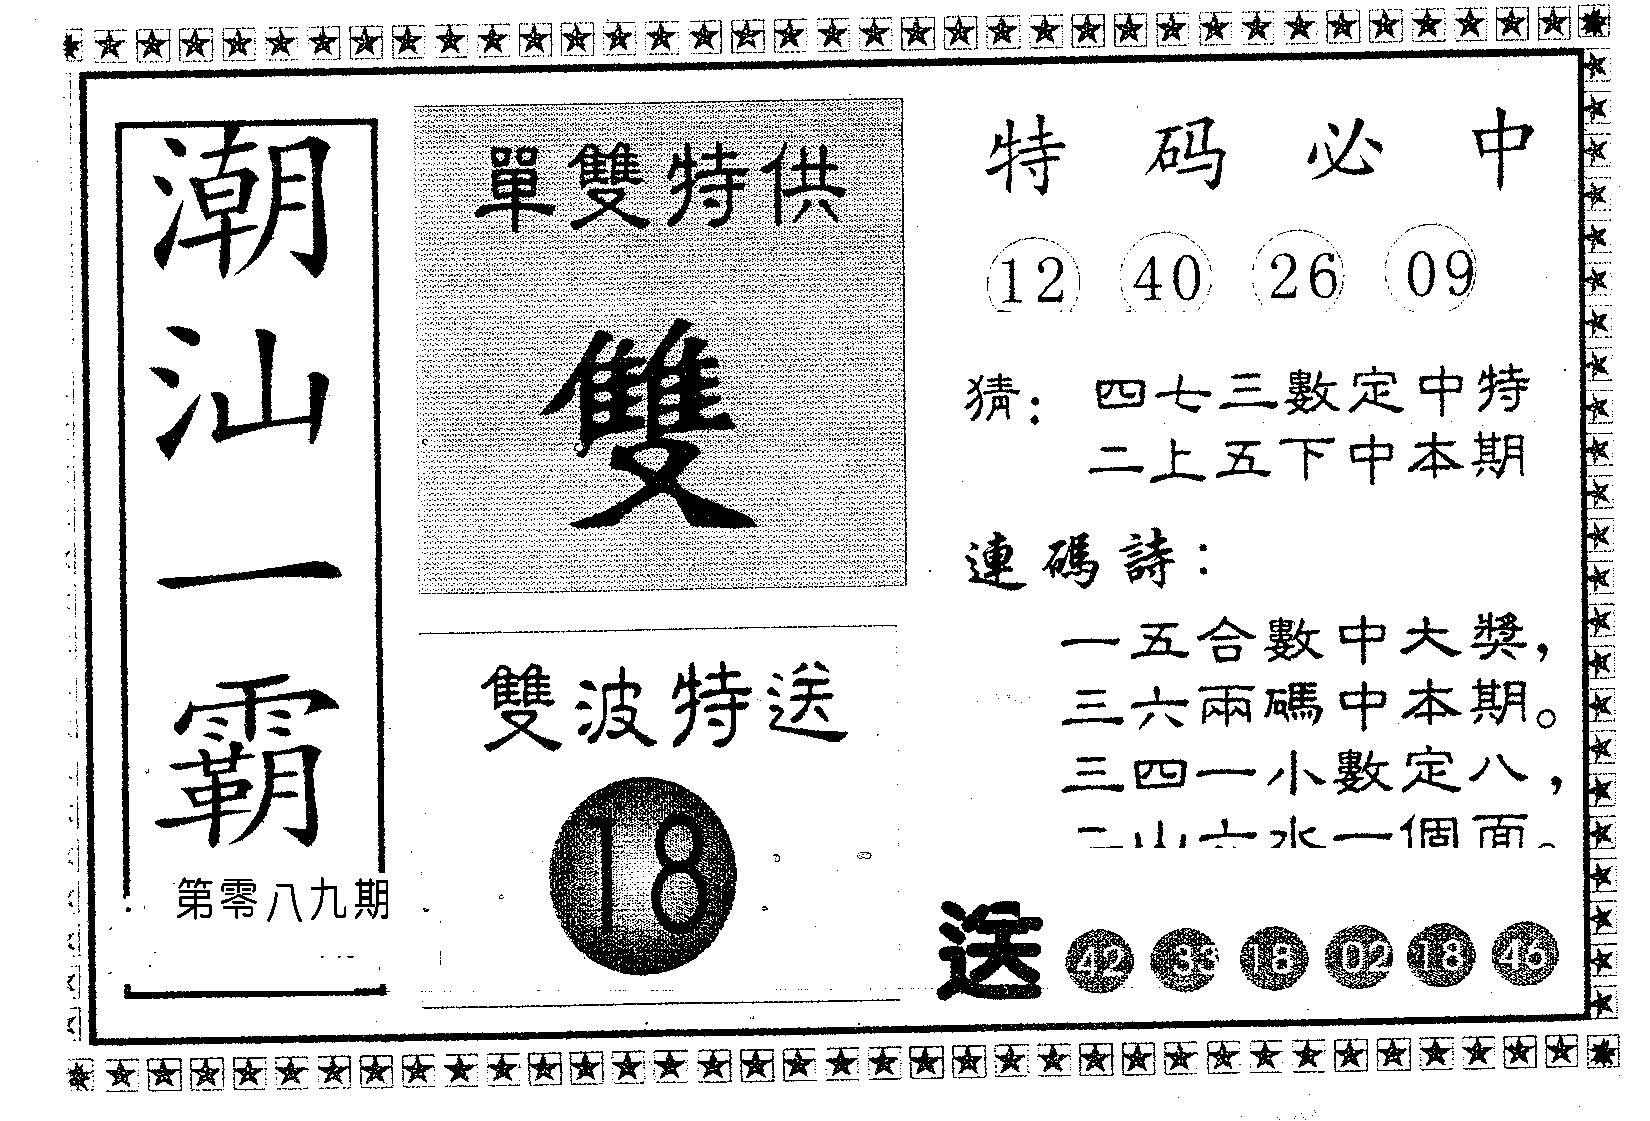 潮汕一霸
第零八九期
單雙特供
雙
雙波特送
18
特码必中
12 40 26 09
猜：四七三數定中特
二上五下中本期
連碼詩：
一五合數中大獎，
三六兩碼中本期。
三四一小數定八，
二山六水一個面。
送 42 33 18 02 18 46